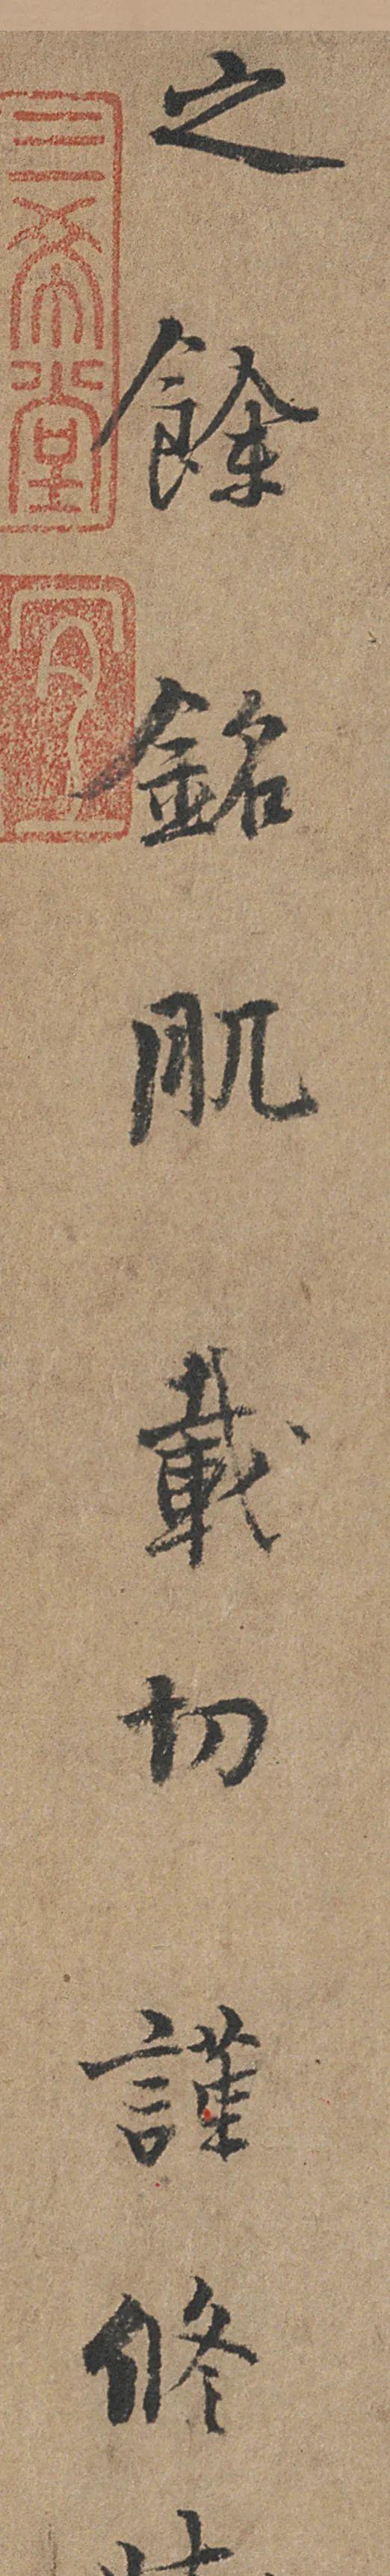 之餘銘肌載切謹修
三希堂